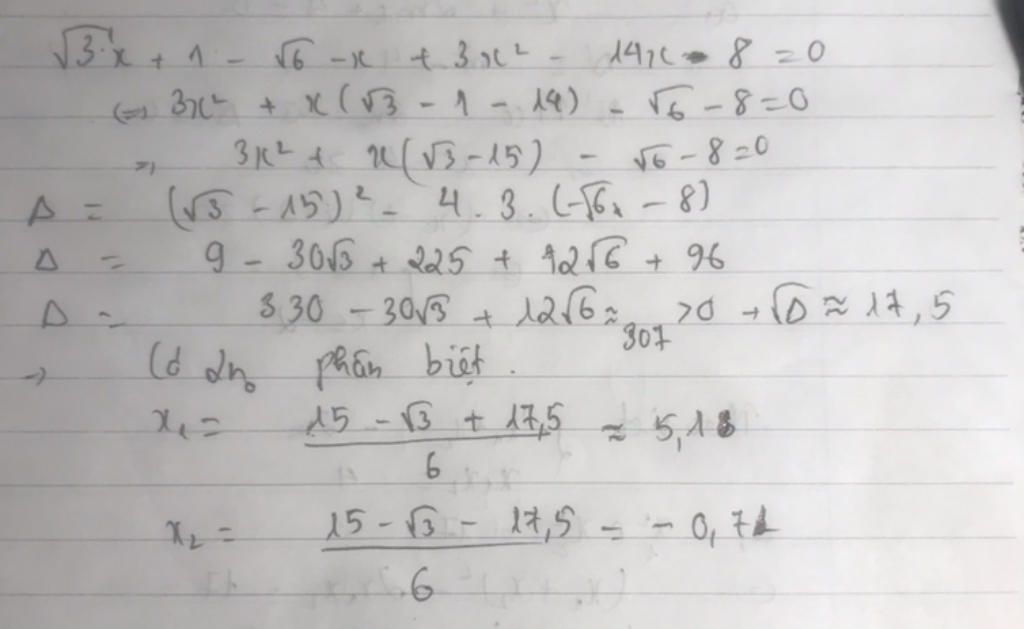 √3.x + 1 - √6 - x + 3x² - 14x - 8 = 0
⇔ 3x² + x(√3 - 1 - 14) - √6 - 8 = 0
⇒ 3x² + x(√3 - 15) - √6 - 8 = 0
Δ = (√3 - 15)² - 4 . 3 . (-√6 - 8)
Δ = 9 - 30√3 + 225 + 12√6 + 96
Δ = 330 - 30√3 + 12√6 ≈ 307 > 0 → √Δ ≈ 17,5
→ Có 2n₀ phân biệt.
x₁ = (15 - √3 + 17,5)/6 ≈ 5,13
x₂ = (15 - √3 - 17,5)/6 = - 0,71